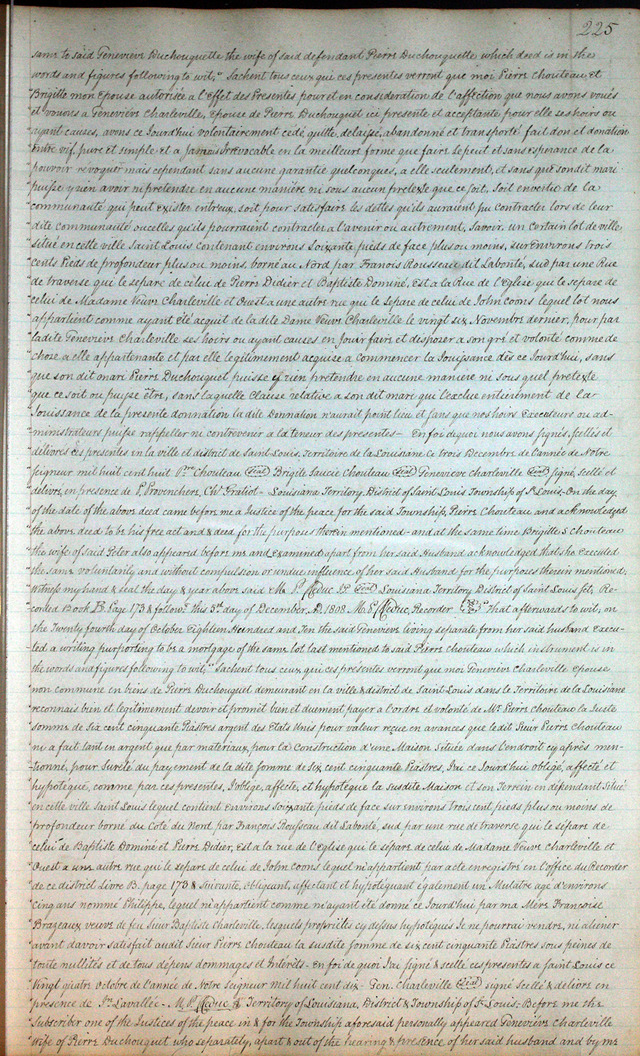 225
same to said Genevieve Duchouquette the wife of said defendant Pierre Duchouquette which deed is in the
words and figures following to wit, "Sachent tous ceux qui ces presentes verront que moi Pierre Chouteau, et
"Brigitte mon Epouse autorisée a l'Effet des Presentes pour et en consideration de l'affection que nous avons voués
"et vouons a Genevieve Charleville, Epouse de Pierre Duchouquet ici presente et acceptante pour elle ses hoirs ou
"ayant causes, avons ce Jourd'hui volontairement cedé quitté, delaissé, abandonné et transporté fait don et donation
"Entre vif, pure et simple et a Jamais Irrévocable en la meilleure forme que faire se peut et sans esperance de la
"pouvoir revoquer mais cependant sans aucune garantie quelconques, a elle seulement, et sans que son dit mari
"puisse y rien avoir ni pretendre en aucune manière ni sous aucun pretexte que ce soit, Soit en vertu de la
"communauté qui peut exister entreux, soit pour satisfaire les dettes qu'ils auraient pu contracter lors de leur
"dite communauté ou celles qu'ils pourraient contracter a l'avenir ou autrement, Savoir, un certain lot de ville,
"situé en cette ville Saint Louis contenant environs Soixante pieds de face plus ou moins, sur environs trois
"cents Pieds de profondeur plus ou moins, borné au Nord par François Rousseau dit Labonté, sud par une Rue
"de traverse qui le separe de celui de Pierre Didier et Baptiste Dominé, Est a la Rue de l'Eglize que le separe de
"celui de Madame Veuve Charleville et Ouest a une autre rue qui le Separe de celui de John Coons lequel lot nous
"appartient comme ayant été acquit de la dite Dame Veuve Charleville le vingt six Novembre dernier, pour par
"la dite Genevieve Charleville ses hoirs ou ayant causes en jouir faire et disposer a son gré et volonté comme de
"chose a elle appartenante et par elle legitimement acquise a commencer la Jouissance dès ce Jourd'hui, sans
"que son dit mari Pierre Duchouquet puisse y rien pretendre en aucune manière ni sous quel pretexte
"que ce soit ou puisse être, sans laquelle Clause relative a son dit mari qui l'exclue entierement de la
"Jouissance de la presente donnation la dite Donnation n'aurait point lieu et sans que nos hoirs Executeurs ou ad-
"ministrateurs puisse rappeller ni contrevenir a la teneur des presentes - En foi de quoi nous avons signés, scellés et
"délivrés ces presentes en la ville et district de Saint Louis, Territoire de la Louisiane ce trois Decembre de l'année de Notre
"Seigneur mil huit cent huit Prre Chouteau (Seal) Brigite Saucie Chouteau (Seal) Genevieve charleville (Seal) signé, scellé et
"délivré, en presence de P. Provenchere, Chs. Gratiot - Louisiana Territory, District of Saint Louis Township of St. Louis - On the day
"of the date of the above deed came before me a Justice of the peace for the said Township, Pierre Chouteau and acknowledged
"the above deed to be his free act and deed for the purposes therein mentioned - and at the same time Brigitte S. Chouteau
"the wife of said Peter also appeared before me and examined apart from her said Husband acknowledged that she Executed
"the same voluntarily and without compulsion or undue influence of her said Husband for the purposes therein mentioned;
"Witness my hand & seal the day & year above said M. P. Leduc J.P. (Seal) Louisiana Territory District of Saint Louis sct, Re-
"corded Book B. Page 173 & followg. this 3rd day of December, AD. 1808 M. P. Leduc, Recorder" That afterwards to wit, on
the Twenty fourth day of October Eighteen Hundred and Ten the said Genevieve living separate from her said husband Execu-
ted a writing purporting to be a mortgage of the same lot last mentioned to said Pierre Chouteau which instrument is in
the words and figures following to wit; "Sachent tous ceux qui ces presentes verront que moi Genevieve Charleville Epouse
"non commune en biens de Pierre Duchouquet demeurant en la ville & district de Saint Louis dans le Territoire de la Louisiane
"reconnais bien et legitimement devoir et promet bien et duement payer a l'ordre et volonté de Mr. Pierre Chouteau la Suste
"somme de Six cent cinquante Piastres argent des Etats Unis pour valeur reçue en avances que le dit Sieur Pierre Chouteau
"m'a fait tant en argent que par materiaux, pour la Construction d'une Maison Située dans l'endroit cy après men-
"tionné, pour Sureté du payement de la dite somme de Six cent cinquante Piastres, J'ai ce Jourd'hui obligé, affecté et
"hypotéqué, comme par ces presentes, J'oblige, affecte, et hypoteque la susdite Maison et son Terrein en dépendant Situé
"en cette ville Saint Louis lequel contient Environs Soixante pieds de face sur environs trois cent pieds plus ou moins de
"profondeur borné du Coté du Nord par François Rousseau dit Labonté, sud par une rue de traverse qui le separe de
"celui de Baptiste Dominé et Pierre Didier, Est a la rue de l'Eglise qui le separe de celui de Madame Veuve Charleville et
"Ouest a une autre rue qui le separe de celui de John Coons lequel m'appartient par acte enregistré en l'office du Recorder
"de ce district Livre B. page 173 & Suivante, obligeant, affectant et hypotéquant également un Mulatre agé d'environs
"Cinq ans nommé Philippe, lequel m'appartient comme m'ayant été donné ce Jourd'hui par ma Mère Françoise
"Brazeaux veuve de feu Sieur Baptiste charleville, lesquels propriétés cy dessus hypotéqués Je ne pourrai vendre, ni aliener
"avant d'avoir satisfait au dit Sieur Pierre Chouteau la susdite somme de six cent cinquante Piastres sous peines de
"toute nullités et de tous dépens dommages et Interets - en foi de quoi J'ai signé & scellé ces presentes a Saint Louis ce
"Vingt quatre Octobre de l'année de Notre Seigneur mil huit cent dix - Gen. Charleville (Seal) signé scellé & delivré en
"presence de Jn. Lavallée - M. P. Leduc, Territory of Louisiana, District & Township of St. Louis - Before me the
"Subscriber one of the Justices of the peace in & for the Township aforesaid personally appeared Genevieve Charleville
"Wife of Pierre Duchouquet who separately, apart & out of the hearing & presence of her said husband and by me